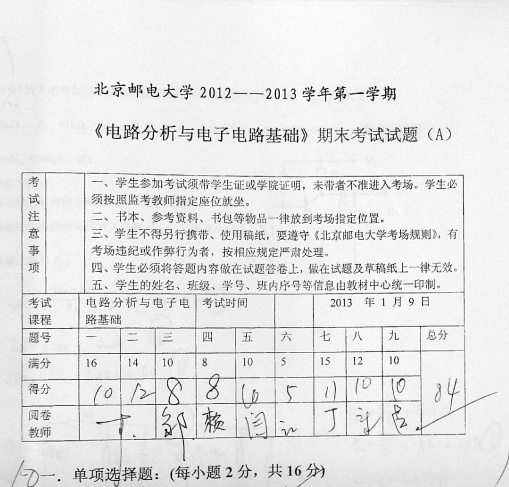 北京邮电大学 2012——2013 学年第一学期
《电路分析与电子电路基础》期末考试试题（A）
考试注意事项
一、学生参加考试须带学生证或学院证明，未带者不准进入考场。学生必
须按照监考教师指定座位就坐。
二、书本、参考资料、书包等物品一律放到考场指定位置。
三、学生不得另行携带、使用稿纸，要遵守《北京邮电大学考场规则》，有
考场违纪或作弊行为者，按相应规定严肃处理。
四、学生必须将答题内容做在试题答卷上，做在试题及草稿纸上一律无效。
五、学生的姓名、班级、学号、班内序号等信息由教材中心统一印制。
考试 电路分析与电子电 考试时间 2013 年 1 月 9 日
课程 路基础
题号 一 二 三 四 五 六 七 八 九 总分
满分 16 14 10 8 10 5 15 12 10
得分 10 12 8 8 10 5 11 10 10 84
阅卷
教师 丁 邹 赖 闫 丁
10 一．单项选择题：(每小题 2 分，共 16 分)